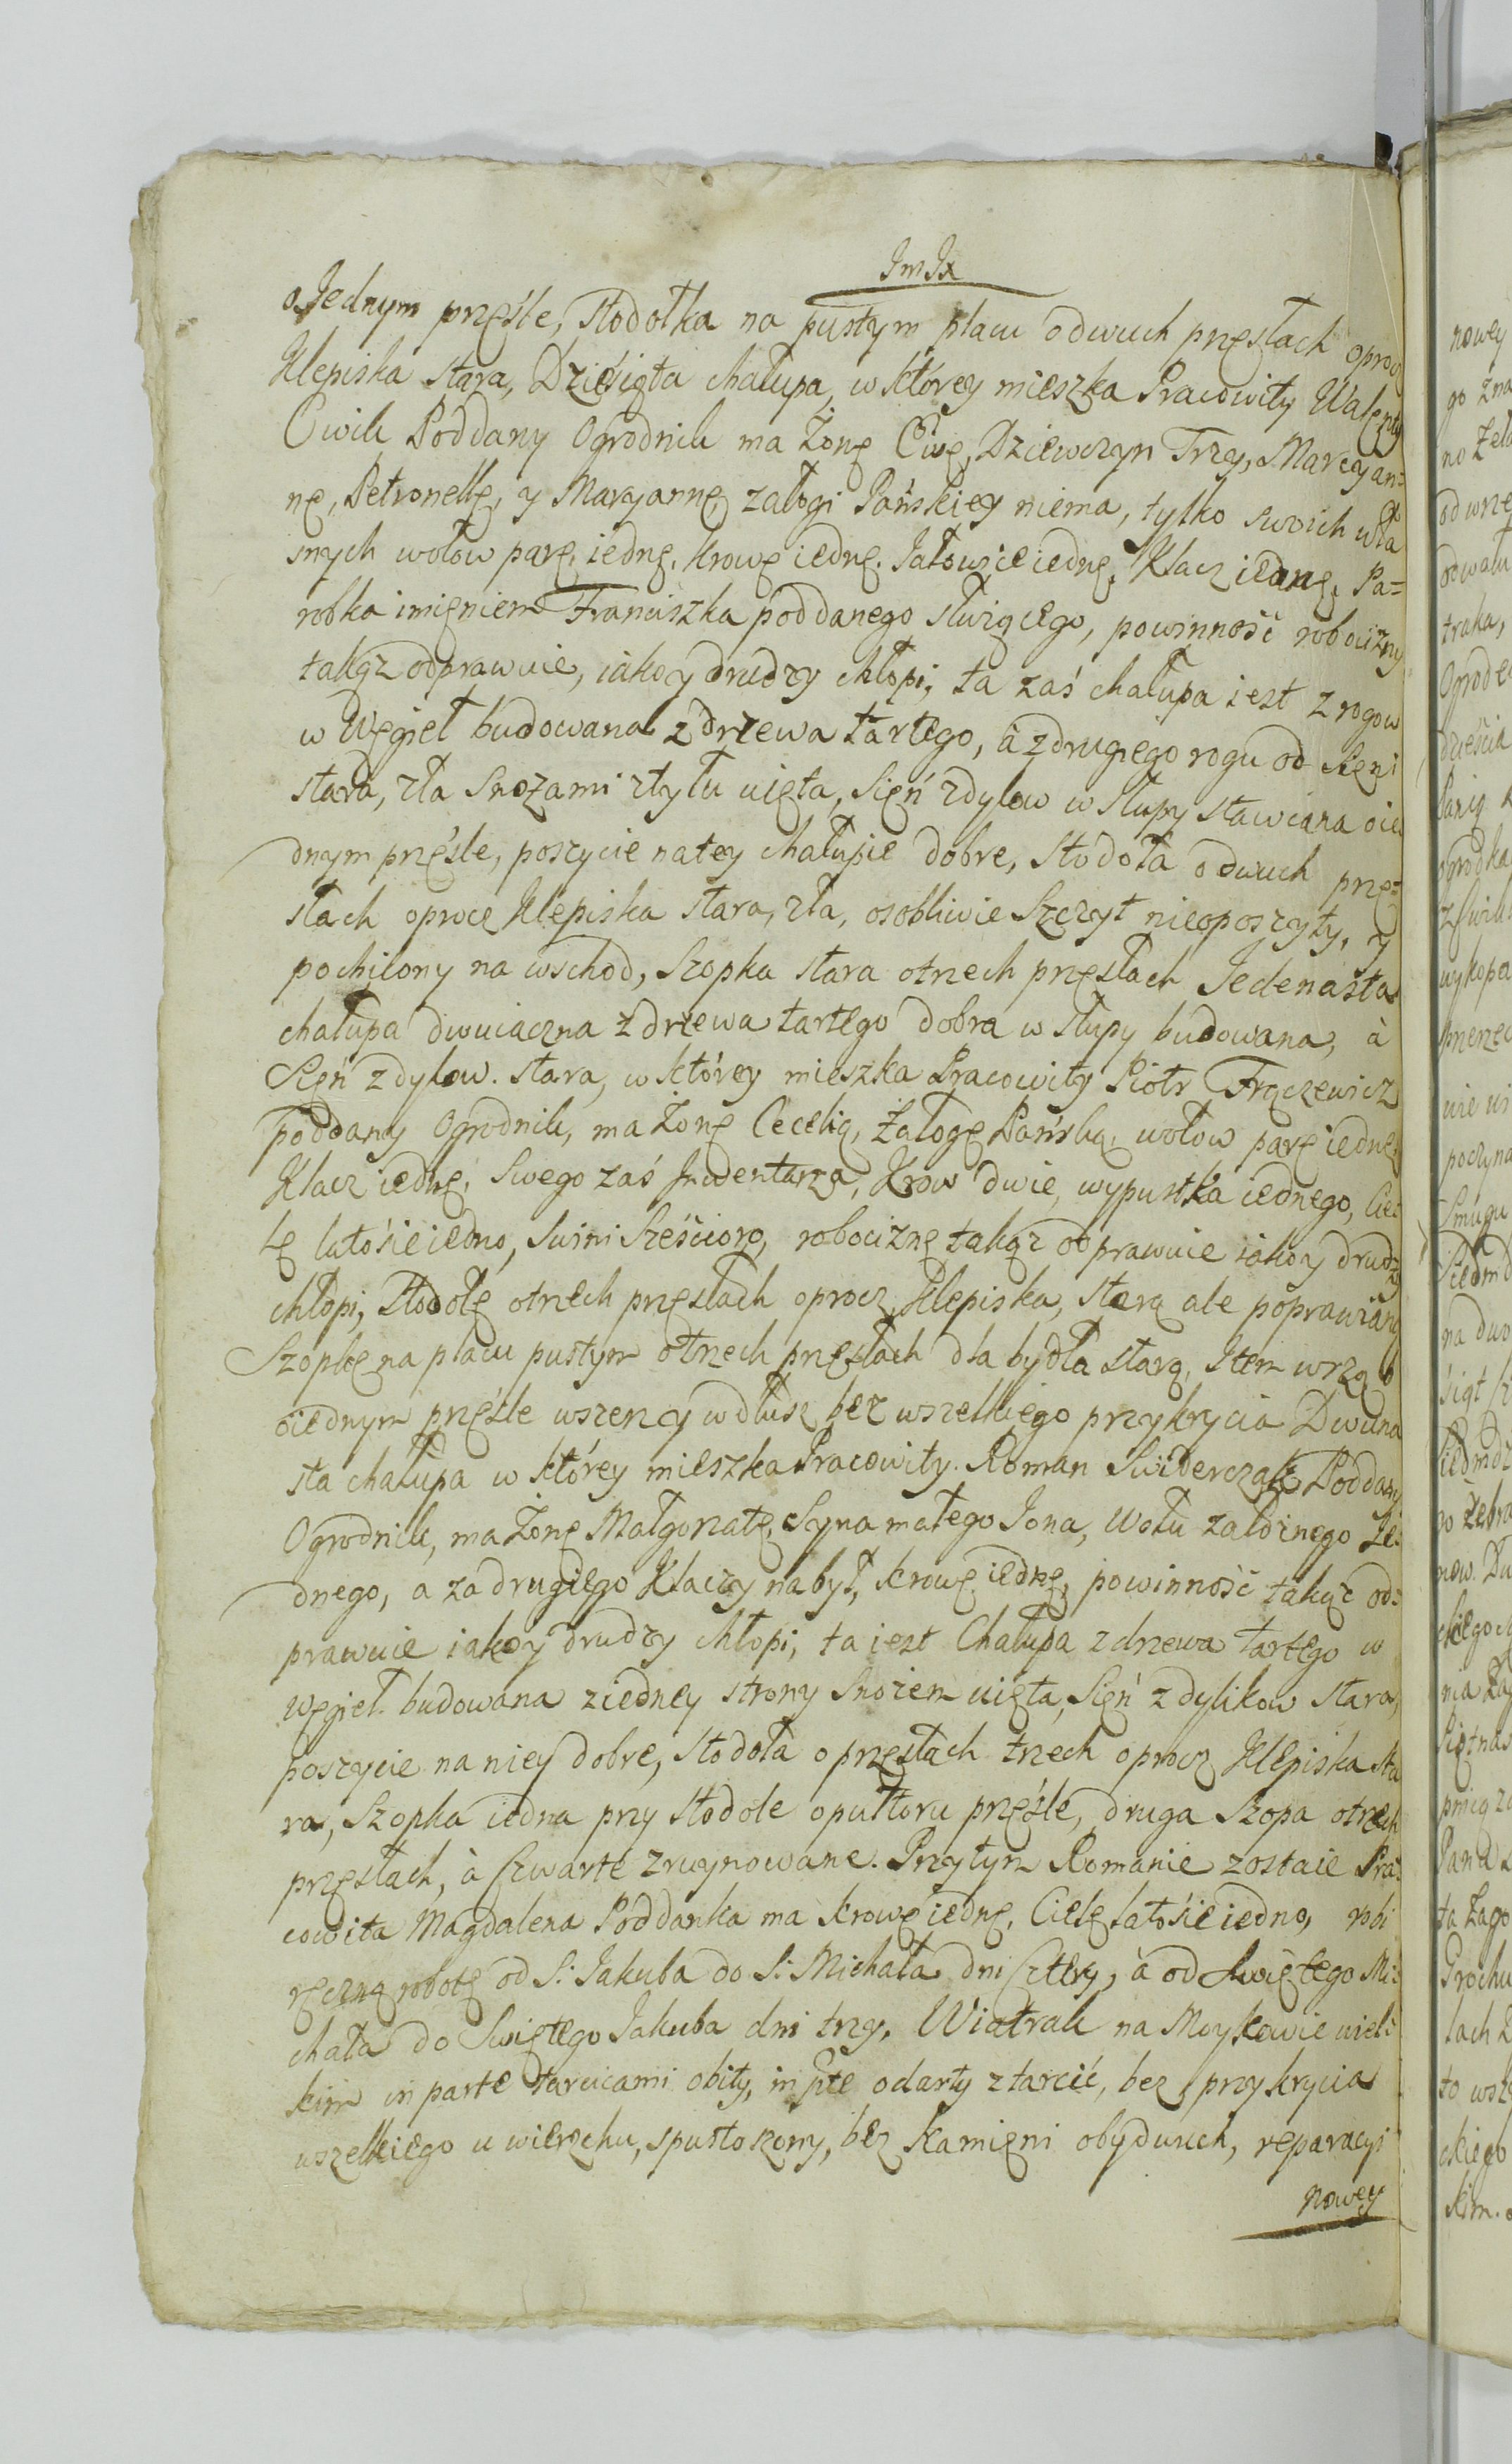 o Jednym przęśle, stodołka na pustym placu o dwuch przęsłach oprocz
Klepiska stara, Dziesiąta chałupa, w którey mieszka Pracowity Walenty
Cwik Poddany Ogrodnik ma Żonę Ewę, Dziewczyn Trzy, Marcyan=
nę, Petronellę, y Maryannę, załogi Pańskiey niema, tylko swoich wła
snych wołow parę iednę, krowę iednę, Jałowice iednę, Klacz iednę, Pa=
robka imięniem Franciszka poddanego służącego, powinność robocizny
takąż odprawuie, iako y drudzy chłopi, ta zaś chałupa iest z rogow
w Węgieł budowana z drzewa tartego, à z drugiego rogu od Sieni
stara, zła Snozami z tyłu uięta, Sięń z dylow w słupy stawiana o ie
dnym przęśle, poszycie na tey chałupie dobre, Stodoła o dwuch przę=
słach oprocz Klepiska stara, zła, osobliwie Szczyt nieoposzyty, y
pochilony na wschod, Szopka stara o trzech przęsłach Jedenasta
chałupa dwuiaczna z drzewa tartego dobra w słupy budowana, à
Sięń z dylow stara, w którey mieszka Pracowity Piotr Frączewicz
poddany Ogrodnik, ma Żonę Cecelią, Załogę Pańską, wołow parę iednę,
Klacz iednę, Swego zaś Inwentarza, Krow dwie, wypustka iednego, Cie=
lę latosie iedno, Swini Sześcioro, robociznę takąż odprawuie iako y drudzy
chłopi, Stodołę o trzech przęsłach oprocz Klepiska, starą ale poprawianą
Szopkę na placu pustym o trzech przęsłach dla bydła starą, Item wrząb
o iednym przęśle wszerz y w dłusz bez wszelkiego przykrycia Dwuna
sta chałupa w którey mieszka Pracowity Roman Swiderczak Poddany
Ogrodnik, ma Żonę Małgorzatę, Syna małego Jona, Wołu załoznego Je=
dnego, a za drugiego Klaczy nabył, krowę iednę, powinność takąż od=
prawuie iako y drudzy chłopi, ta iest Chałupa z drzewa tartego w
Węgieł budowana z iedney strony Snozem uięta, Sięń z dylikow stara,
poszycie na niey dobre, stodoła o przęsłach trzech oprocz Klepiska sta
ra, Szopka iedna przy stodole o pułtoru przęśle, druga Szopa o trzech
przęsłach, à Czwarte zruynowane. Przy tym Romanie zostaie Pra=
cowita Magdalena Poddanka ma krowę iednę, Cielę latosie iedno, robi
ręczną robotę od S: Jakuba do S: Michała dni Cztery, à od Swiętego Mi=
chała do Swiętego Jakuba dni trzy. Wiatrak na Moykowie wiel=
kim in parte tarcicami obity, in pte odarty z tarcić, bez przykrycia
wszelkiego u wierzchu, spustoszony, bez Kamięni obydwuch, reparacyi
nowey